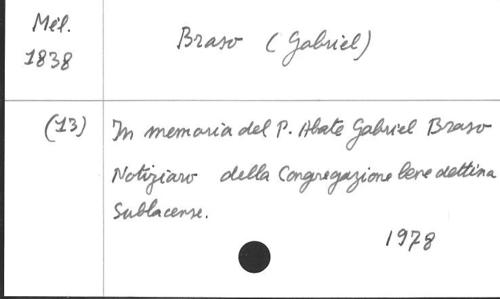 Mél.
1838
Braso (Gabriel)
(13)
In memoria del P. Abate Gabriel Braso
Notiziaro della Congregazione benedettina
Sublacense.
1978